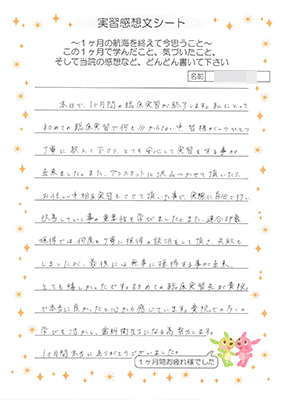 実習感想文シート
～1ヶ月の航海を終えて今思うこと～
この1ヶ月で学んだこと、気づいたこと、
そして当院の感想など、どんどん書いて下さい
名前
本日で、1ヶ月間の臨床実習が終了します。私にとって
初めての臨床実習で何も分からない中、皆様が一つひとつ
丁寧に教えて下さり、とても安心して実習をする事が
出来ました。また、アシスタントに沢山つかせて頂いたり、
お忙しい中相互実習もさせて頂いた事で、実際に自分で行い
状態を
事の重要性を学びました。また、連合印象
採得では、何度も丁寧に採得の練習をして頂き、失敗も
しましたが、最後には無事に採得する事が出来、
とても嬉しかったです。初めての臨床実習先が貴院
で本当に良かったと心から感じています。貴院での
学びを活かし、歯科衛生士になる為努力します。
1ヶ月間本当にありがとうございました。
1ヶ月間お疲れ様でした